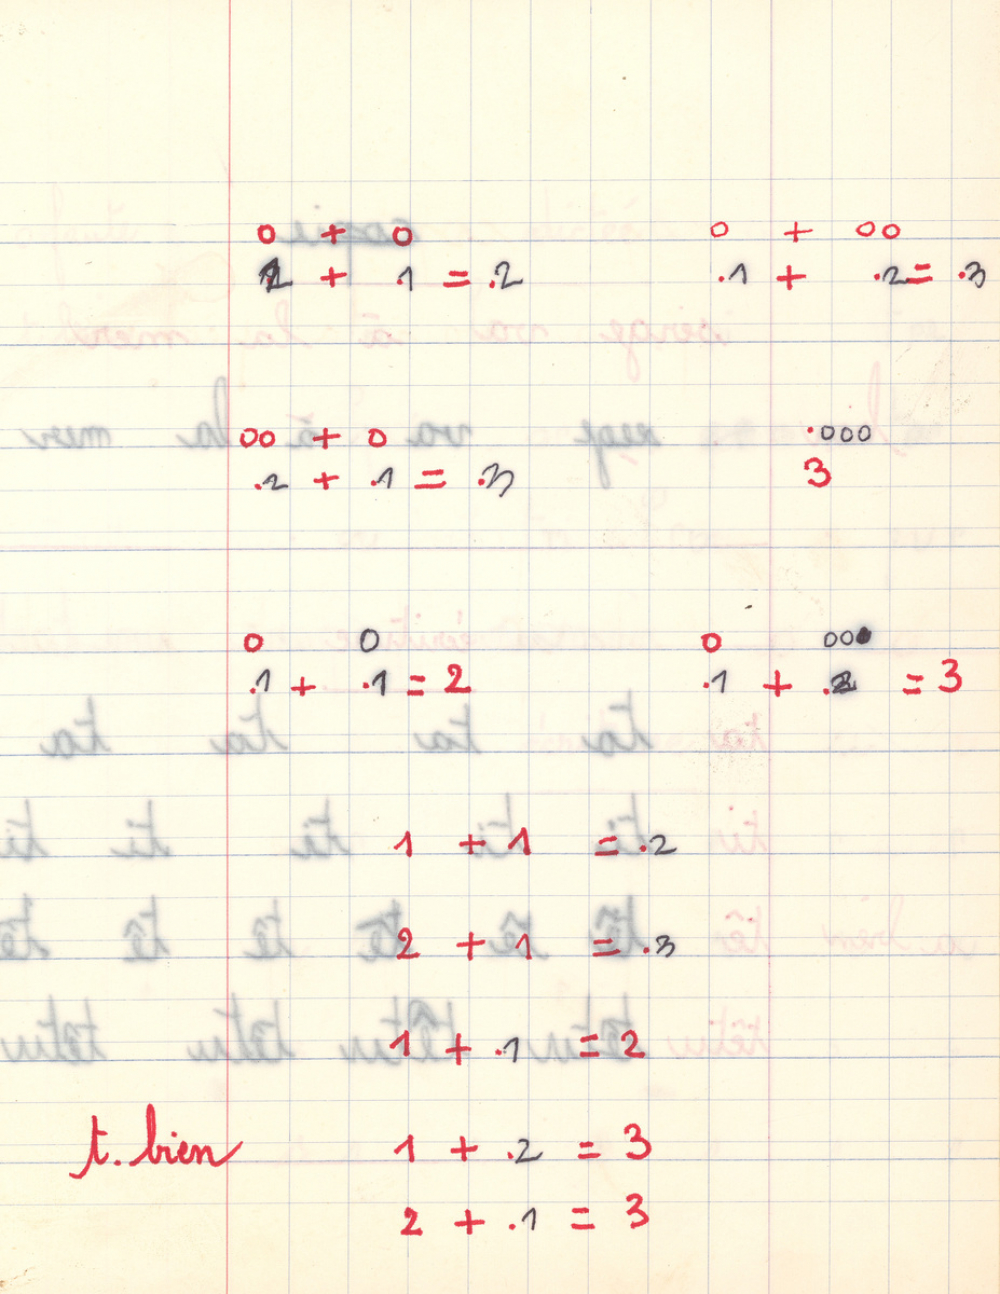 o + o o + oo
1 + .1 = .2 .1 + .2 = .3
oo + o .ooo
.2 + .1 = .3 3
o o o oo
.1 + .1 = 2 .1 + .2 = 3
1 + 1 = .2
2 + 1 = .3
1 + .1 = 2
t. bien 1 + .2 = 3
2 + .1 = 3